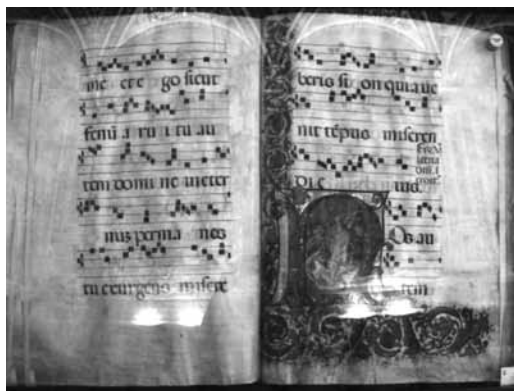 me et e go sicut
fenū a ru i tu au
tem domi ne ineter
nus perma nes
tu exurgens misere
beris si on quia ue
nit tēpus miseren
di e ius.
Os au
tem